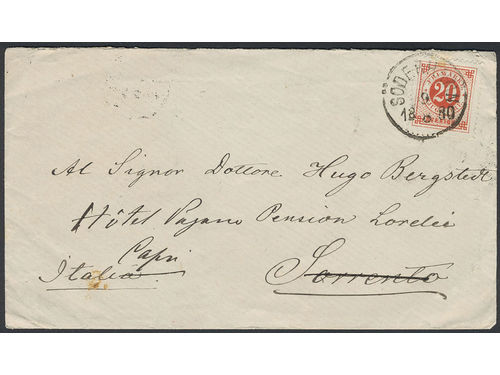 SÖDER
FRIMÄRKE
20
18 80
Al Signor Dottore Hugo Bergstedt
Hôtel Pagano Pension Lorelei
Capri
Italia Sorrento